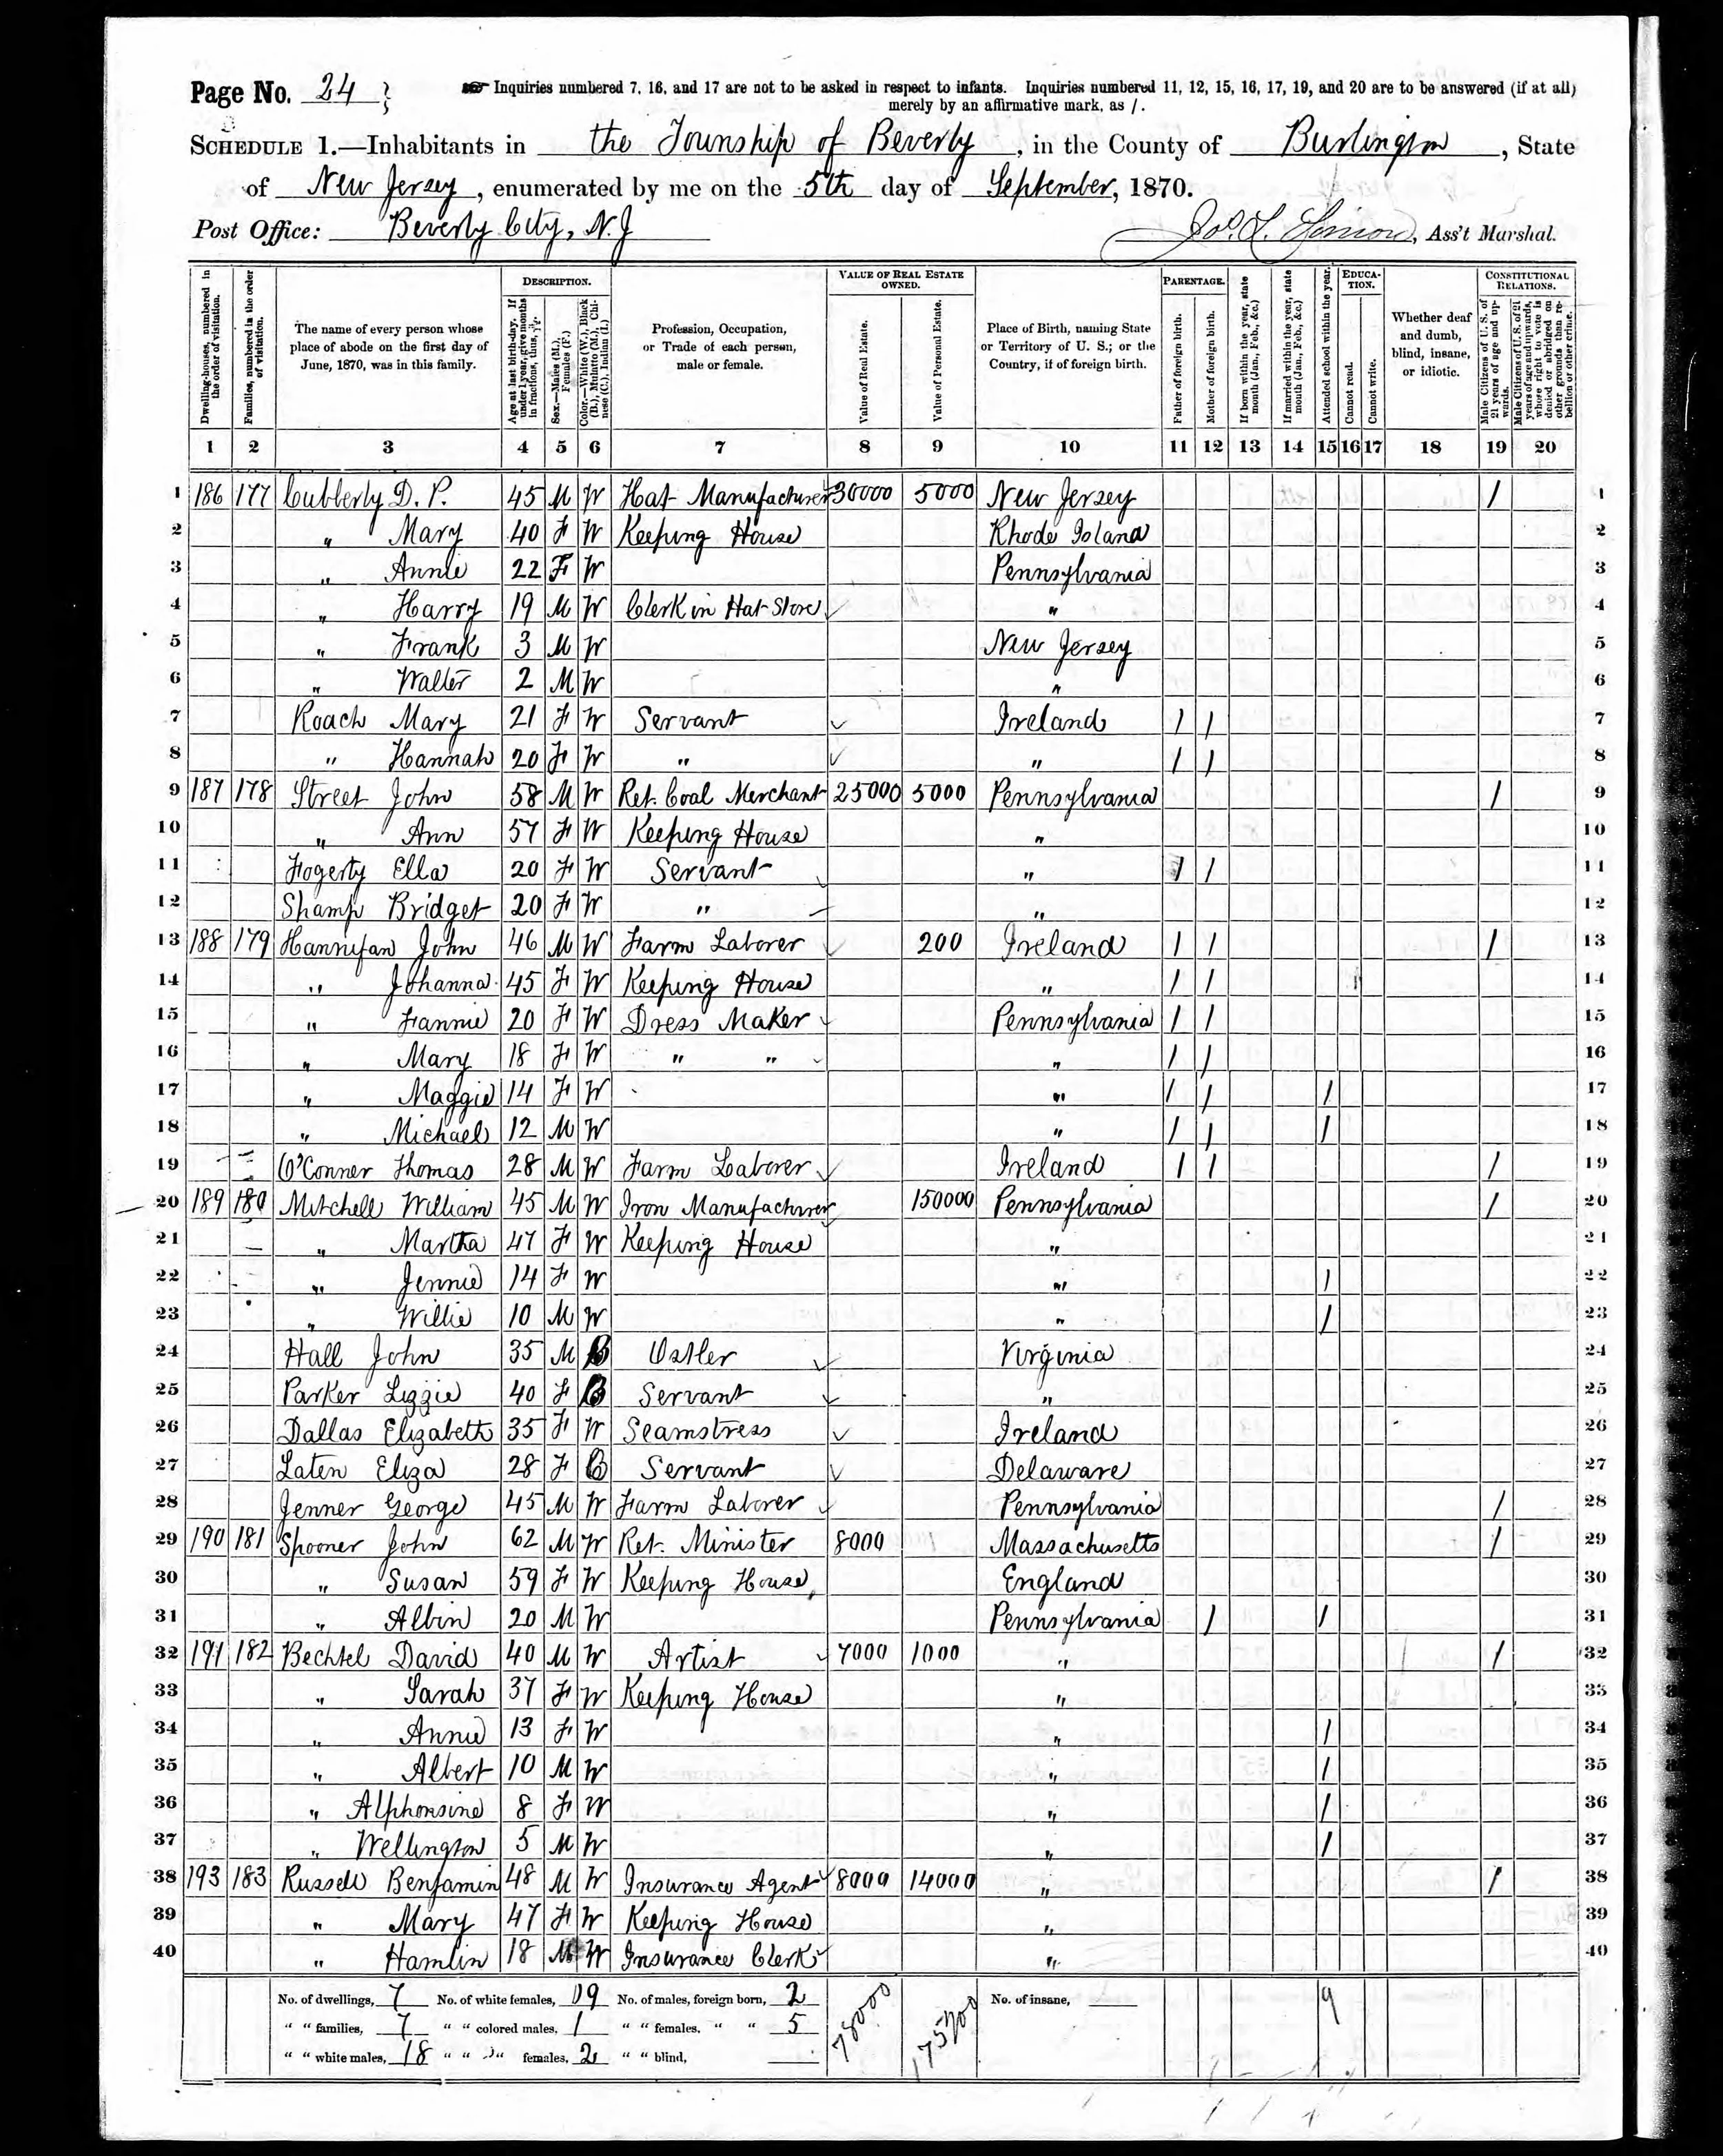 Page No. 24
Inquiries numbered 7, 16, and 17 are not to be asked in respect to infants. Inquiries numbered 11, 12, 15, 16, 17, 19, and 20 are to be answered (if at all)
merely by an affirmative mark, as /.
SCHEDULE 1.—Inhabitants in the Township of Beverly, in the County of Burlington, State
of New Jersey, enumerated by me on the 5th day of September, 1870.
Post Office: Beverly City, N.J , Ass't Marshal.
Dwelling-houses, numbered in the order of visitation.
Families, numbered in the order of visitation.
The name of every person whose place of abode on the first day of June, 1870, was in this family.
DESCRIPTION.
Age at last birth-day. If under 1 year, give months in fractions, thus, 3/12.
Sex.—Males (M.), Females (F.)
Color.—White (W.), Black (B.), Mulatto (M.), Chinese (C.), Indian (I.)
Profession, Occupation, or Trade of each person, male or female.
VALUE OF REAL ESTATE OWNED.
Value of Real Estate.
Value of Personal Estate.
Place of Birth, naming State or Territory of U. S.; or the Country, if of foreign birth.
PARENTAGE.
Father of foreign birth.
Mother of foreign birth.
If born within the year, state month (Jan., Feb., &c.)
If married within the year, state month (Jan., Feb., &c.)
Attended school within the year.
EDUCATION.
Cannot read.
Cannot write.
Whether deaf and dumb, blind, insane, or idiotic.
CONSTITUTIONAL RELATIONS.
Male Citizens of U. S. of 21 years of age and upwards.
Male Citizens of U. S. of 21 years of age and upwards, whose right to vote is denied or abridged on other grounds than rebellion or other crime.
1 2 3 4 5 6 7 8 9 10 11 12 13 14 15 16 17 18 19 20
1 186 177 Cubberly D. P. 45 M W Hat Manufacturer 30000 5000 New Jersey / 1
2 " Mary 40 F W Keeping House Rhode Island 2
3 " Annie 22 F W Pennsylvania 3
4 " Harry 19 M W Clerk in Hat Store " 4
5 " Frank 3 M W New Jersey 5
6 " Walter 2 M W " 6
7 Roach Mary 21 F W Servant Ireland / / 7
8 " Hannah 20 F W " " / / 8
9 187 178 Street John 58 M W Ret. Coal Merchant 25000 5000 Pennsylvania / 9
10 " Ann 57 F W Keeping House " 10
11 Fogerty Ella 20 F W Servant " / / 11
12 Shamp Bridget 20 F W " " 12
13 188 179 Hannifan John 46 M W Farm Laborer 200 Ireland / / / 13
14 " Johanna 45 F W Keeping House " / / 14
15 " Fannie 20 F W Dress Maker Pennsylvania / / 15
16 " Mary 18 F W " " " / / 16
17 " Maggie 14 F W " / / / 17
18 " Michael 12 M W " / / / 18
19 O'Conner Thomas 28 M W Farm Laborer Ireland / / / 19
20 189 180 Mitchell William 45 M W Iron Manufacturer 150000 Pennsylvania / 20
21 " Martha 47 F W Keeping House " 21
22 " Jennie 14 F W " / 22
23 " Willie 10 M W " / 23
24 Hall John 35 M B Ostler Virginia 24
25 Parker Lizzie 40 F B Servant " 25
26 Dallas Elizabeth 35 F W Seamstress Ireland 26
27 Laten Eliza 28 F B Servant Delaware 27
28 Jenner George 45 M W Farm Laborer Pennsylvania / 28
29 190 181 Spooner John 62 M W Ret. Minister 8000 Massachusetts / 29
30 " Susan 59 F W Keeping House England 30
31 " Albin 20 M W Pennsylvania / / 31
32 191 182 Bechtel David 40 M W Artist 7000 1000 " / 32
33 " Sarah 37 F W Keeping House " 33
34 " Annie 13 F W " / 34
35 " Albert 10 M W " / 35
36 " Alphonsine 8 F W " / 36
37 " Wellington 5 M W " / 37
38 193 183 Russell Benjamin 48 M W Insurance Agent 8000 14000 " / 38
39 " Mary 47 F W Keeping House " 39
40 " Hamlin 18 M W Insurance Clerk " 40
No. of dwellings, 7 No. of white females, 19 No. of males, foreign born, 2 78000 175200 No. of insane, 9
" " families, 7 " " colored males, 1 " " females, " " 5
" " white males, 18 " " " females, 2 " " blind,